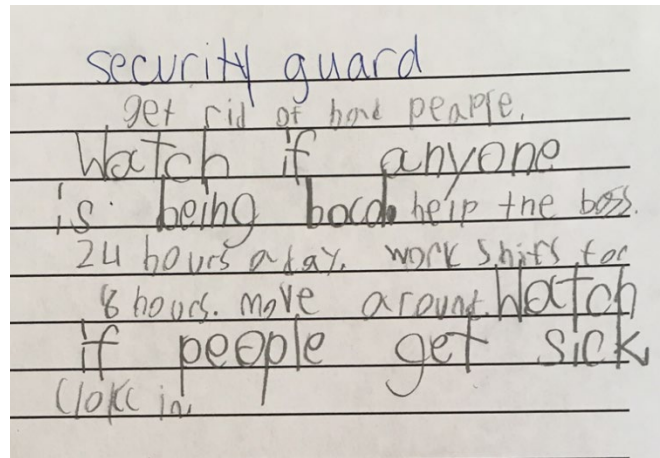 security guard
get rid of bad peaple.
Watch if anyone
is being bad help the boss.
24 hours a day. work shifs for
8 hours. move around. Watch
if people get sick
Clokc in.